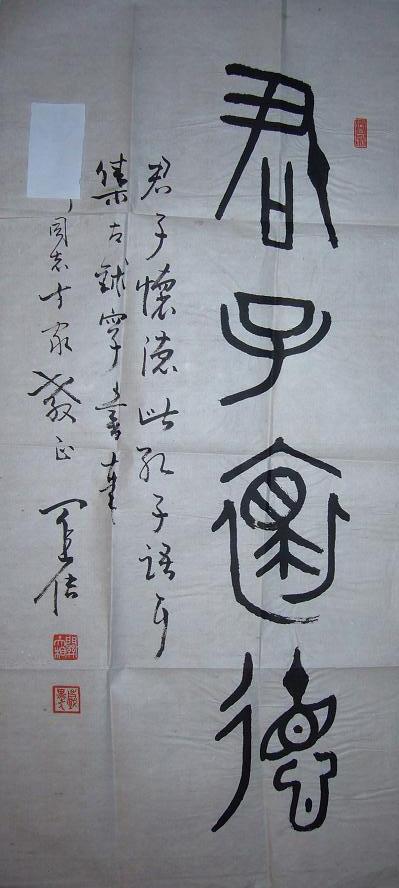 君子懷德
君子懷德此孔子語耳
集古鉥字書奉
同志方家教正